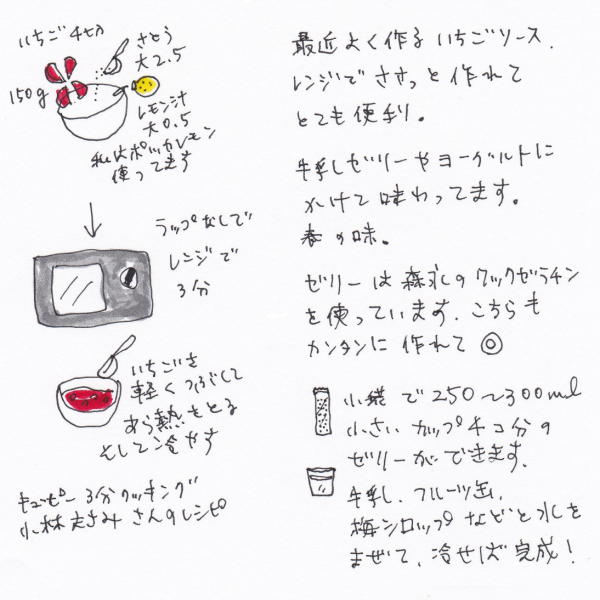 いちご4セカ
さとう
大2.5
150g
レモン汁
大0.5
私はポッカレモン
使ってます
ラップなしで
レンジで
3分
いちごを
軽くつぶして
あら熱をとる
そして冷やす
キューピー3分クッキング
小林まさみさんのレシピ
最近よく作るいちごソース.
レンジでささっと作れて
とても便利。
牛乳ゼリーやヨーグルトに
かけて味わってます。
春の味。
ゼリーは森永のクックゼラチン
を使っています.こちらも
カンタンに作れて◎
小袋で250〜300ml
小さいカップ4コ分の
ゼリーができます.
牛乳、フルーツ缶、
梅シロップなどと水を
まぜて、冷せば完成!